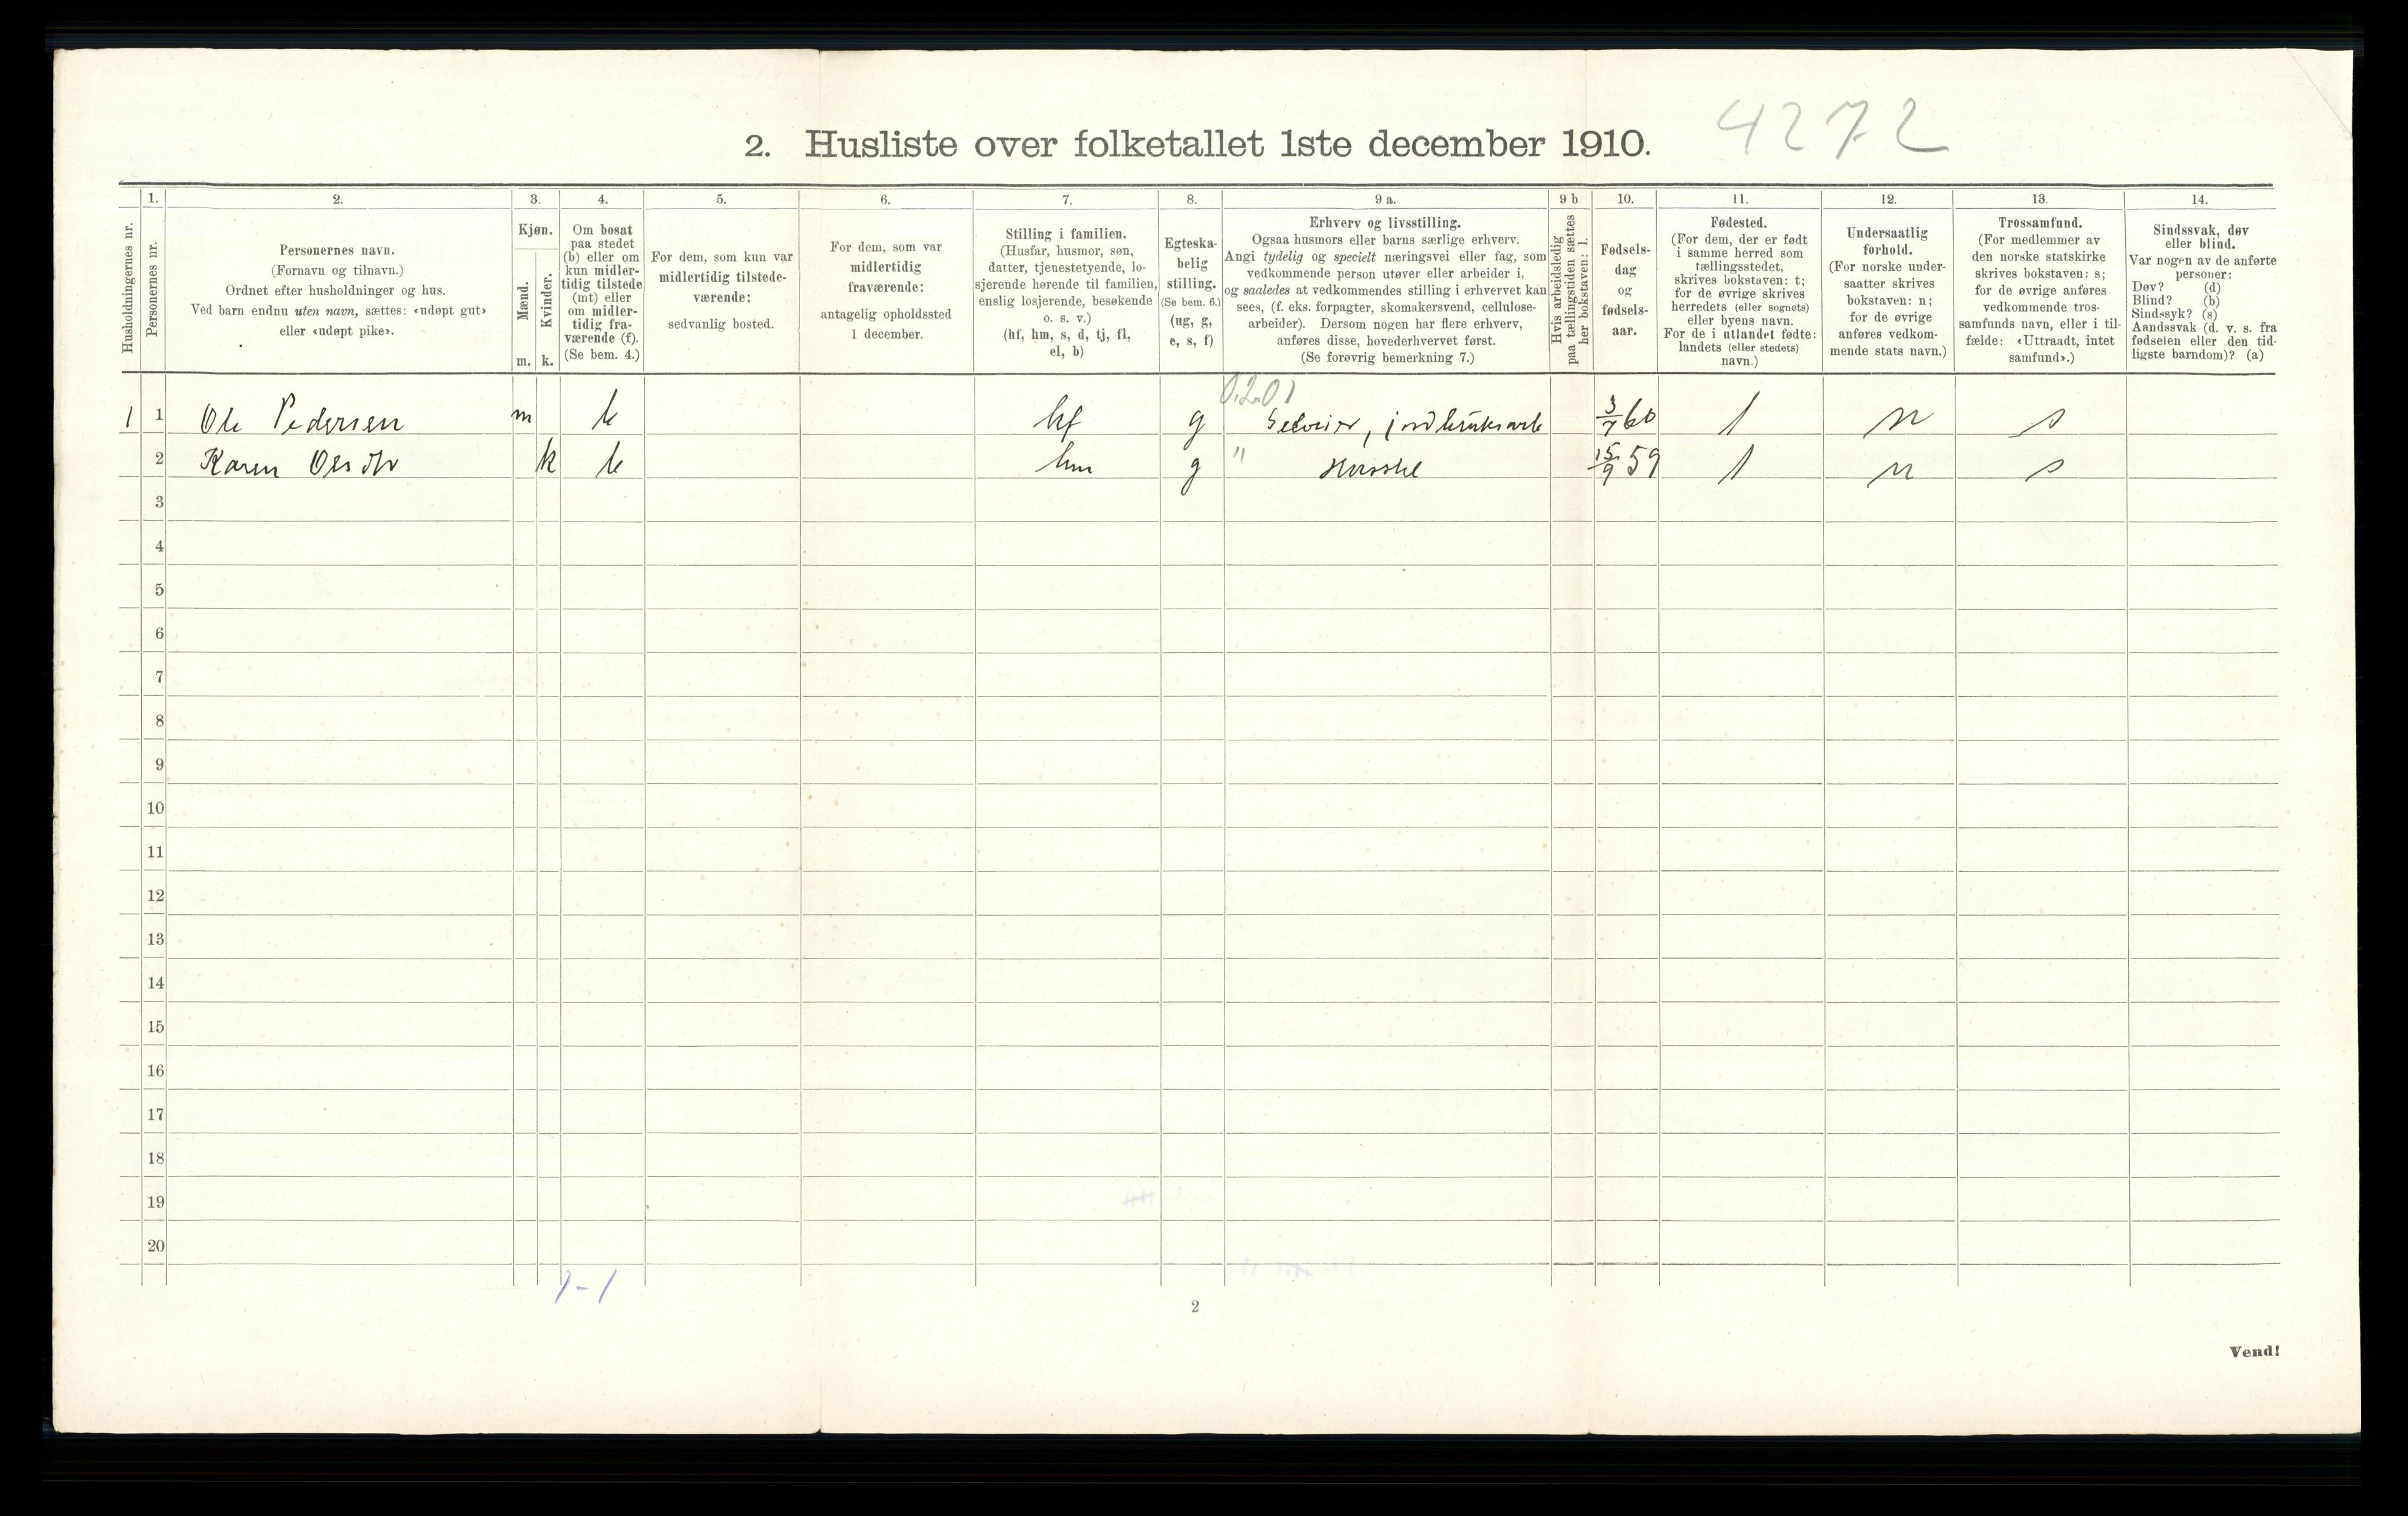 2. Husliste over folketallet 1ste december 1910.
4272
Husholdningernes nr.
1.
Personernes nr.
2.
Personernes navn.
(Fornavn og tilnavn.)
Ordnet efter husholdninger og hus.
Ved barn endnu uten navn, sættes: «udøpt gut»
eller «udøpt pike».
3.
Kjøn.
Mænd.
m.
Kvinder.
k.
4.
Om bosat
paa stedet
(b) eller om
kun midler-
tidig tilstede
(mt) eller
om midler-
tidig fra-
værende (f).
(Se bem. 4.)
5.
For dem, som kun var
midlertidig tilstede-
værende:
sedvanlig bosted.
6.
For dem, som var
midlertidig
fraværende:
antagelig opholdssted
1 december.
7.
Stilling i familien.
(Husfar, husmor, søn,
datter, tjenestetyende, lo-
sjerende hørende til familien,
enslig losjerende, besøkende
o. s. v.)
(hf, hm, s, d, tj, fl,
el, b)
8.
Egteska-
belig
stilling.
(Se bem. 6.)
(ug, g,
e, s, f)
9 a.
Erhverv og livsstilling.
Ogsaa husmors eller barns særlige erhverv.
Angi tydelig og specielt næringsvei eller fag, som
vedkommende person utøver eller arbeider i,
og saaledes at vedkommendes stilling i erhvervet kan
sees, (f. eks. forpagter, skomakersvend, cellulose-
arbeider). Dersom nogen har flere erhverv,
anføres disse, hovederhvervet først.
(Se forøvrig bemerkning 7.)
9 b
Hvis arbeidsledig
paa tællingstiden sættes
her bokstaven: l.
10.
Fødsels-
dag
og
fødsels-
aar.
11.
Fødested.
(For dem, der er født
i samme herred som
tællingsstedet,
skrives bokstaven: t;
for de øvrige skrives
herredets (eller sognets)
eller byens navn.
For de i utlandet fødte:
landets (eller stedets)
navn.)
12.
Undersaatlig
forhold.
(For norske under-
saatter skrives
bokstaven: n;
for de øvrige
anføres vedkom-
mende stats navn.)
13.
Trossamfund.
(For medlemmer av
den norske statskirke
skrives bokstaven: s;
for de øvrige anføres
vedkommende tros-
samfunds navn, eller i til-
fælde: «Uttraadt, intet
samfund».)
14.
Sindssvak, døv
eller blind.
Var nogen av de anførte
personer:
Døv? (d)
Blind? (b)
Sindssyk? (s)
Aandssvak (d. v. s. fra
fødselen eller den tid-
ligste barndom)? (a)
0.2.01
1 1 Ole Pedersen m b hf g Selveier, jordbruksarb 3/7 60 t n s
2 Karen Olsdtr k b hm g " Husstel 15/9 59 t n s
3
4
5
6
7
8
9
10
11
12
13
14
15
16
17
18
19
20
1-1
2
Vend!